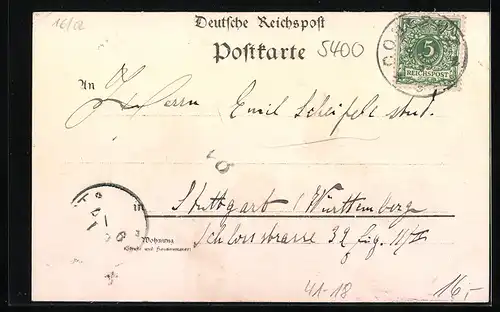 16/a
Deutsche Reichspost
Postkarte 5400
5
REICHSPOST
An Herrn Emil
stud.
in Stuttgart (Württemberg
Wohnung
(Straße und Hausnummer)
Schlossstrasse
41-18
16,-